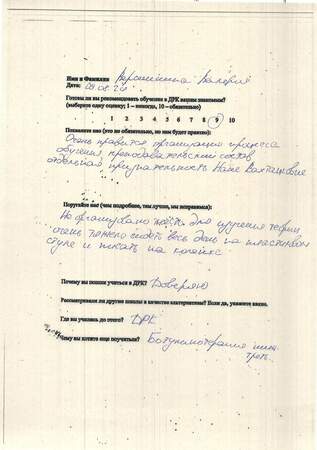 Имя и Фамилия Верашнина Валерия
Дата: 09.08.24
Готовы ли вы рекомендовать обучение в ДРК вашим знакомым?
(выберите одну оценку; 1 – никогда, 10 – обязательно)
1 2 3 4 5 6 7 8 9 10
Похвалите нас (это не обязательно, но нам будет приятно):
Очень нравится организация процесса
обучения, преподавательский состав
отдельная признательность Нане Вахтанговне
Поругайте нас (чем подробнее, тем лучше, мы исправимся):
Но организовано место для изучения теории
очень тяжело сидеть весь день на пластиковом
стуле и писать на коленке
Почему вы пошли учиться в ДРК? Доверяю
Рассматривали ли другие школы в качестве альтернативы? Если да, укажите какие.
Где вы учились до этого? ДРК
Чему вы хотите еще поучиться? Ботулинотерапия